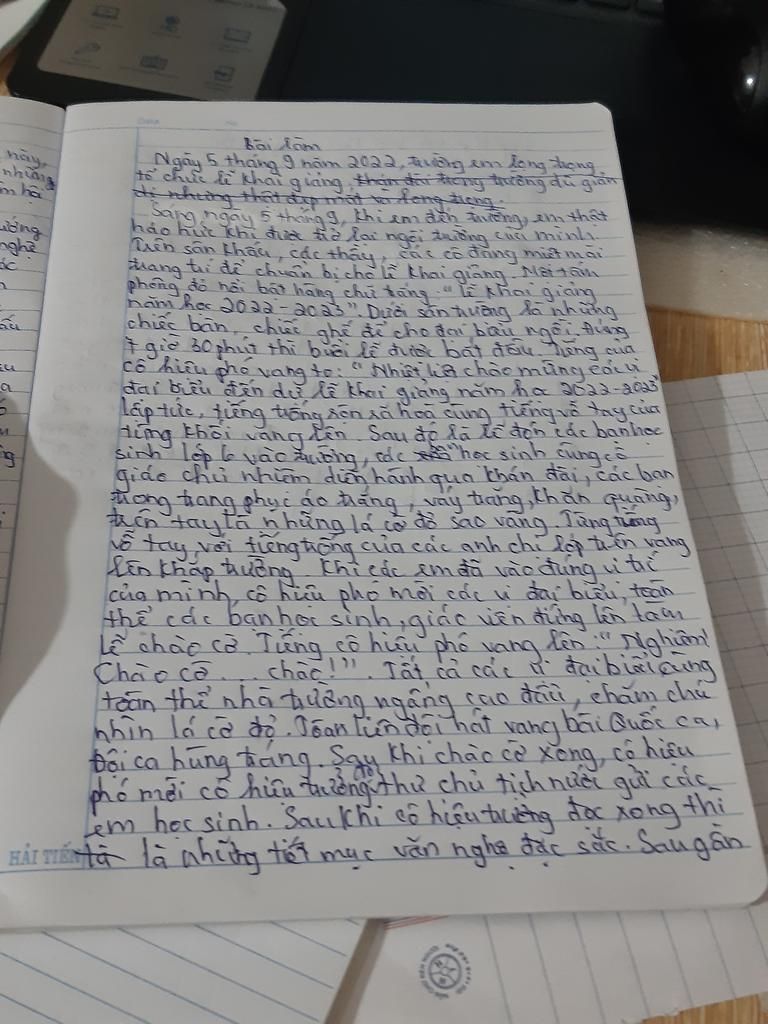 Bài làm
Ngày 5 tháng 9 năm 2022, trường em long trọng
tổ chức lễ khai giảng, khán đài trong trường dù giản
dị nhưng thật đẹp mắt và long trọng.
Sáng ngày 5 tháng 9, khi em đến trường, em thật
háo hức khi được trở lại ngôi trường của mình.
Trên sân khấu, các thầy, các cô đang miệt mài
trang trí để chuẩn bị cho lễ khai giảng. Một tấm
phông đỏ nổi bật hàng chữ trắng: "Lễ khai giảng
năm học 2022-2023". Dưới sân trường là những
chiếc bàn, chiếc ghế để cho đại biểu ngồi. Đúng
7 giờ 30 phút thì buổi lễ được bắt đầu. Tiếng của
cô hiệu phó vang to: "Nhiệt liệt chào mừng các vị
đại biểu đến dự lễ khai giảng năm học 2022-2023"
lập tức, tiếng trống rộn rã hoà cùng tiếng vỗ tay của
từng khối vang lên. Sau đó là lễ đón các bạn học
sinh lớp 6 vào trường, các học sinh cùng cô
giáo chủ nhiệm diễn hành qua khán đài, các bạn
trong trang phục áo trắng, váy trắng, khăn quàng,
trên tay là những lá cờ đỏ sao vàng. Từng tiếng
vỗ tay, với tiếng trống của các anh chị lớp trên vang
lên khắp trường. Khi các em đã vào đúng vị trí
của mình, cô hiệu phó mời các vị đại biểu, toàn
thể các bạn học sinh, giác viên đứng lên làm
lễ chào cờ. Tiếng cô hiệu phó vang lên: "Nghiêm!
Chào cờ... chào!". Tất cả các vị đại biểu cùng
toàn thể nhà trường ngẩng cao đầu, chăm chú
nhìn lá cờ đỏ. Toàn liên đội hát vang bài Quốc ca,
Đội ca hùng tráng. Sau khi chào cờ xong, cô hiệu
phó mời cô hiệu trưởng đọc thư chủ tịch nước gửi các
em học sinh. Sau khi cô hiệu trưởng đọc xong thì
HẢI TIẾN là những tiết mục văn nghệ đặc sắc. Sau gần